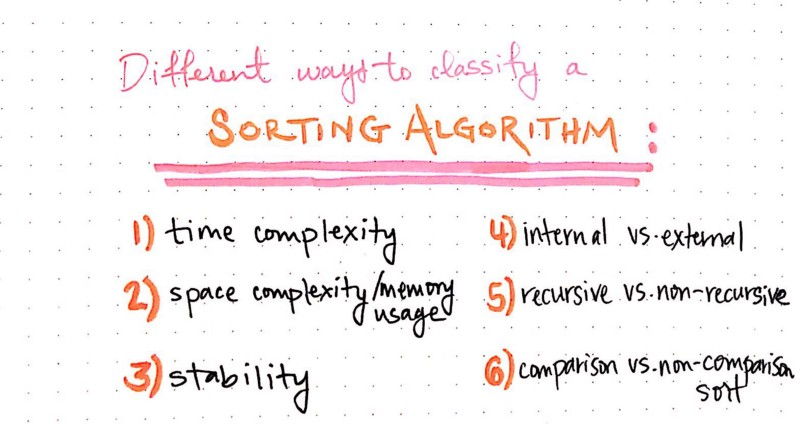 Different ways to classify a
SORTING ALGORITHM:
1) time complexity
2) space complexity/memory
usage
3) stability
4) internal vs. external
5) recursive vs. non-recursive
6) comparison vs. non-comparison
sort